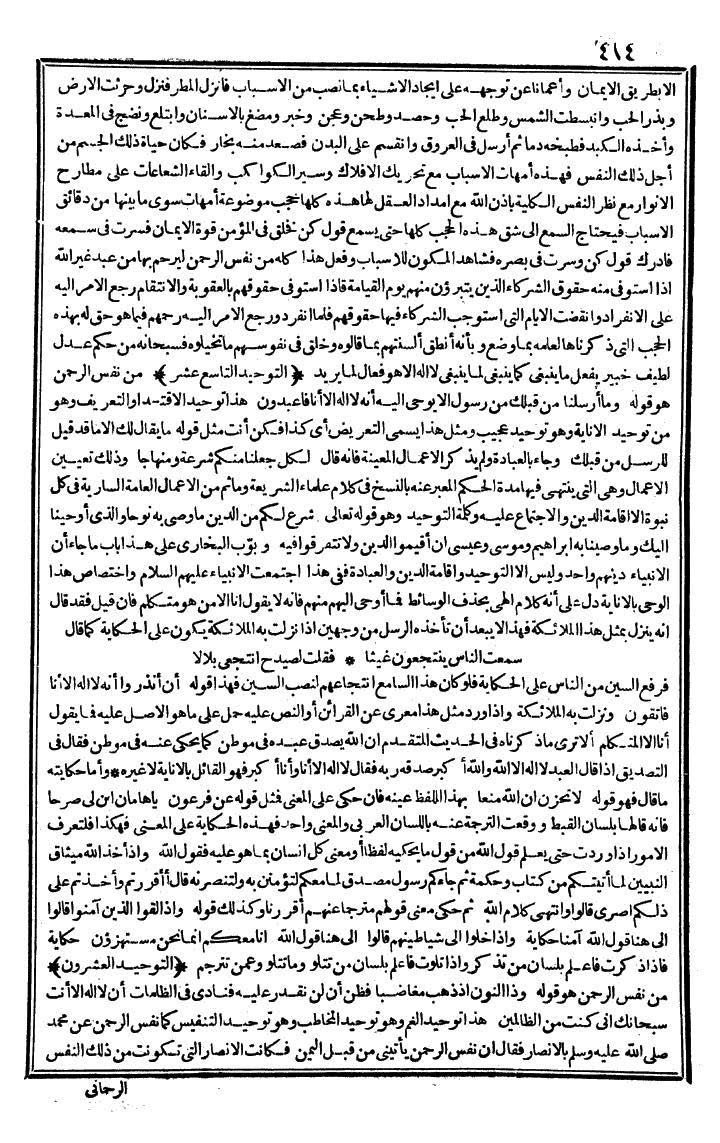 ٤١٤
الا بطريق الايمان وأعمانا عن توجهه على ايجاد الاشياء بما نصب من الاسباب فانزل المطر فنزل وحرثت الارض
وبذر الحب وانبسطت الشمس وطلع الحب وحصد وطحن وعجن وخبر ومضغ بالاسنان وابتلع ونضج فى المعدة
وأخذه الكبد فطبخه دما ثم أرسل فى العروق وانقسم على البدن فصعد منه بخار فكان حياة ذلك الجسم من
أجل ذلك النفس فهذه أمهات الاسباب مع تحريك الافلاك وسير الكواكب والقاء الشعاعات على مطارح
الانوار مع نظر النفس الكلية باذن الله مع امداد العقل لها هذه كلها حجب موضوعة أمهات سوى ما بينها من دقائق
الاسباب فيحتاج السمع الى شق هذه الحجب كلها حتى يسمع قول كن فخلق فى المؤمن قوة الايمان فسرت فى سمعه
فادرك قول كن وسرت فى بصره فشاهد المكون للاسباب وفعل هذا كله من نفس الرحمن ليرحم بها من عبد غير الله
اذا استوفى منه حقوق الشركاء الذين يتبرؤن منهم يوم القيامة فاذا استوفى حقوقهم بالعقوبة والانتقام رجع الامر اليه
على الانفراد وانقضت الايام التى استوجب الشركاء فيها حقوقهم فلما انفرد ورجع الامر اليه رحمهم فيما هو حق له بهذه
الحجب التى ذكرناها لعلمه بما وضع وبأنه أنطق ألسنتهم بما قالوه وخلق فى نفوسهم ما تخيلوه فسبحانه من حكم عدل
لطيف خبير يفعل ما ينبغى كما ينبغى لما ينبغى لا اله الا هو فعال لما يريد ﴿التوحيد التاسع عشر﴾ من نفس الرحمن
هو قوله وما أرسلنا من قبلك من رسول الا يوحى اليه أنه لا اله الا أنا فاعبدون هذا توحيد الاقتداء والتعريف وهو
من توحيد الاناية وهو توحيد عجيب ومثل هذا يسمى التعريض أى كذا فكن أنت مثل قوله ما يقال لك الا ما قد قيل
للرسل من قبلك وجاء بالعبادة ولم يذكر الاعمال المعينة فانه قال لكل جعلنا منكم شرعة ومنهاجا وذلك تعيين
الاعمال وهى التى ينتهى فيها مدة الحكم المعبر عنه بالنسخ فى كلام علماء الشريعة وما ثم من الاعمال العامة السارية فى كل
نبوة الا اقامة الدين والاجتماع عليه وكلمة التوحيد وهو قوله تعالى شرع لكم من الدين ما وصى به نوحا والذى أوحينا
اليك وما وصينا به ابراهيم وموسى وعيسى ان أقيموا الدين ولا تتفرقوا فيه وبوّب البخارى على هذا باب ما جاء أن
الانبياء دينهم واحد وليس الا التوحيد واقامة الدين والعبادة ففى هذا اجتمعت الانبياء عليهم السلام واختصاص هذا
الوحى بالاناية دل على أنه كلام الهى بحذف الوسائط فما أوحى اليهم منهم فانه لا يقول انا الا من هو متكلم فان قيل فقد قال
انه ينزل بمثل هذا الملائكة فهذا لا يبعد أن تأخذه الرسل من وجهين اذا نزلت به الملائكة يكون على الحكاية كما قال
سمعت الناس ينتجعون غيثا * فقلت لصيدح انتجعى بلالا
فرفع السين من الناس على الحكاية فلو كان هذا السامع انتجاعهم لنصب السين فهذا قوله أن أنذروا أنه لا اله الا أنا
فاتقون ونزلت به الملائكة واذا ورد مثل هذا معرى عن القرائن أو النص عليه حمل على ما هو الاصل عليه فما يقول
أنا الا المتكلم ألا ترى ما ذكرناه فى الحديث المتقدم ان الله يصدق عبده فى موطن كما يحكى عنه فى موطن فقال فى
التصديق اذا قال العبد لا اله الا الله والله أكبر صدقه ربه فقال لا اله الا أنا وأنا أكبر فهو القائل بالاناية لا غيره * وأما حكايته
ما قال فهو قوله لا تحزن ان الله معنا بهذا اللفظ عينه فان حكى على المعنى فمثل قوله عن فرعون يا هامان ابن لى صرحا
فانه قالها بلسان القبط ووقعت الترجمة عنه باللسان العربى والمعنى واحد فهذه الحكاية على المعنى فهكذا فلتعرف
الامور اذا وردت حتى يعلم قول الله من قول ما يحكيه لفظا أو معنى كل انسان بما هو عليه فقول الله واذ أخذ الله ميثاق
النبيين لما آتيتكم من كتاب وحكمة ثم جاءكم رسول مصدق لما معكم لتؤمنن به ولتنصرنه قال أأقررتم وأخذتم على
ذلكم اصرى قالوا وانتهى كلام الله ثم حكى معنى قولهم مترجما عنهم أقررنا وكذلك قوله واذا لقوا الذين آمنوا قالوا
الى هنا قول الله آمنا حكاية واذا خلوا الى شياطينهم قالوا الى هنا قول الله انا معكم انما نحن مستهزؤن حكاية
فاذا ذكرت فاعلم بلسان من تذكر واذا تلوت فاعلم بلسان من تتلو وما تتلو وعمن تترجم ﴿التوحيد العشرون﴾
من نفس الرحمن هو قوله وذا النون اذ ذهب مغاضبا فظن أن لن نقدر عليه فنادى فى الظلمات أن لا اله الا أنت
سبحانك انى كنت من الظالمين هذا توحيد الغم وهو توحيد المخاطب وهو توحيد التنفيس كما نفس الرحمن عن محمد
صلى الله عليه وسلم بالانصار فقال ان نفس الرحمن يأتينى من قبل اليمن فكانت الانصار التى تكونت من ذلك النفس
الرحمانى